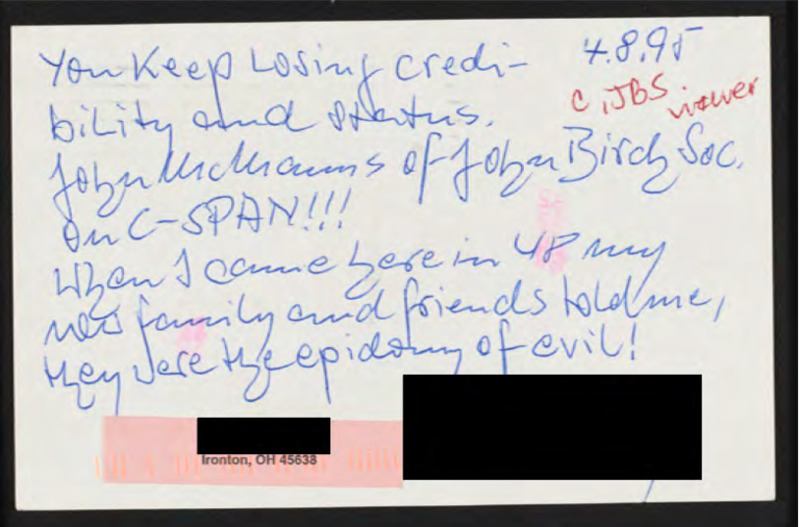 You Keep Losing credi-
bility and status.
John McManus of John Birch Soc.
on C-SPAN!!!
When I came here in 48 my
new family and friends told me,
they were the epidomy of evil!
4.8.95
C, JBS, viewer
Ironton, OH 45638